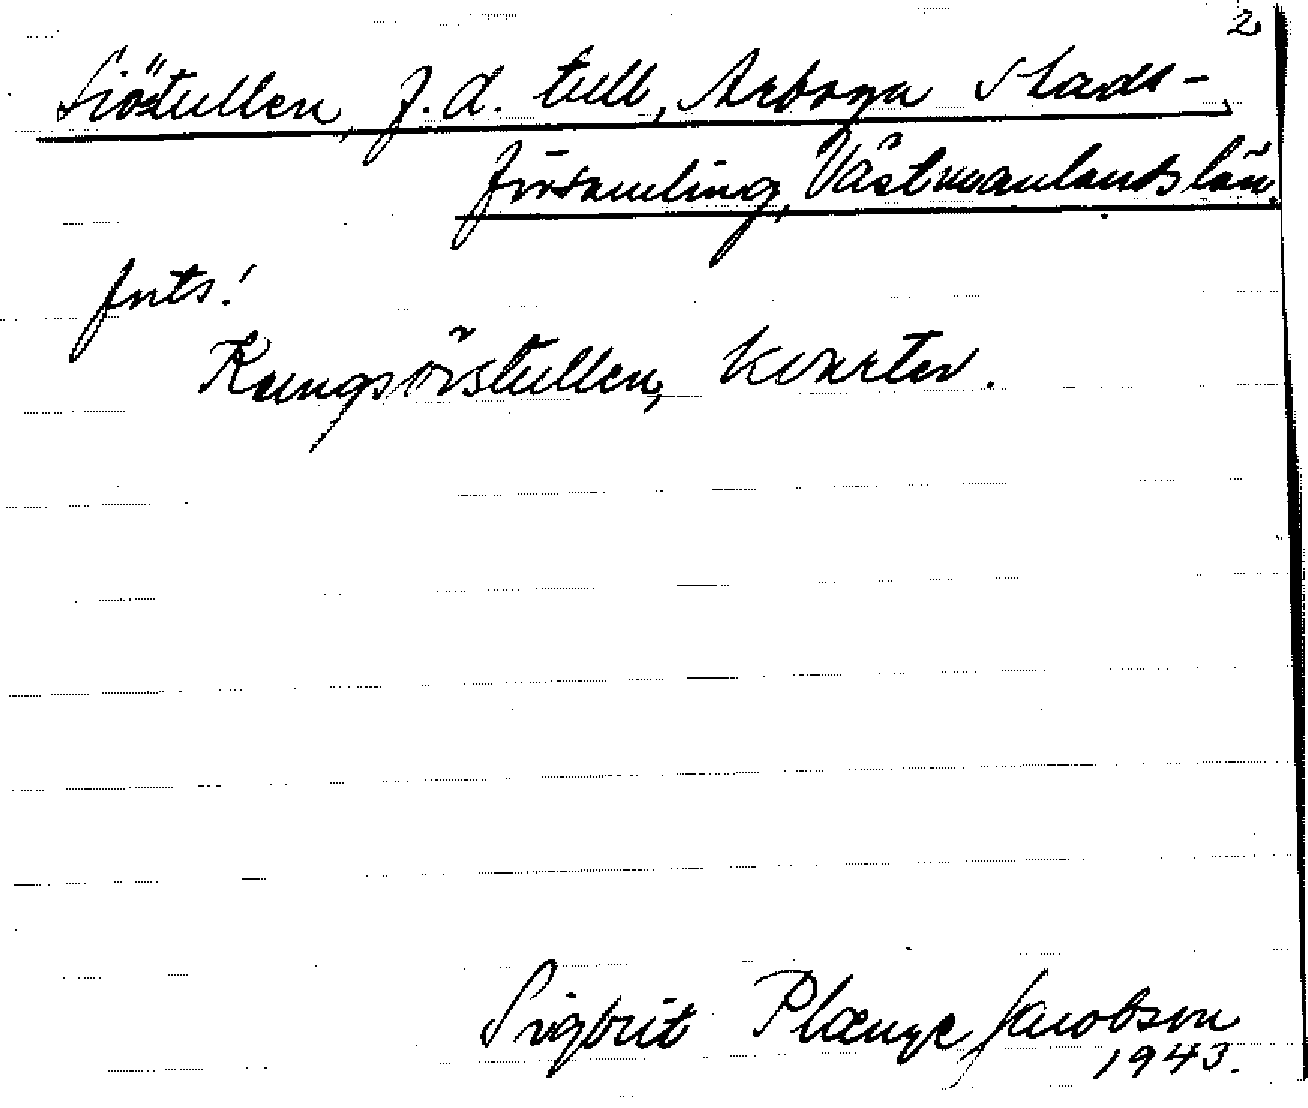 2
Sjötullen, f.d. tull, Arboga stads-
församling, Västmanlands län.
forts!
Kungsörstullen, kvarter.
Sigbrit Plænge Jacobson
1943.